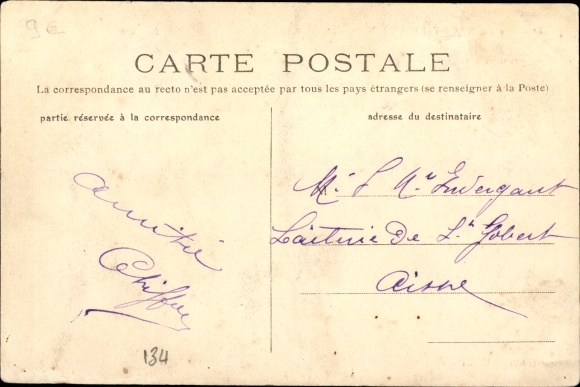 9 €
CARTE POSTALE
La correspondance au recto n'est pas acceptée par tous les pays étrangers (se renseigner à la Poste)
partie réservée à la correspondance
adresse du destinataire
amitié
Mr
Laiterie de St Gobert
Aisne
134